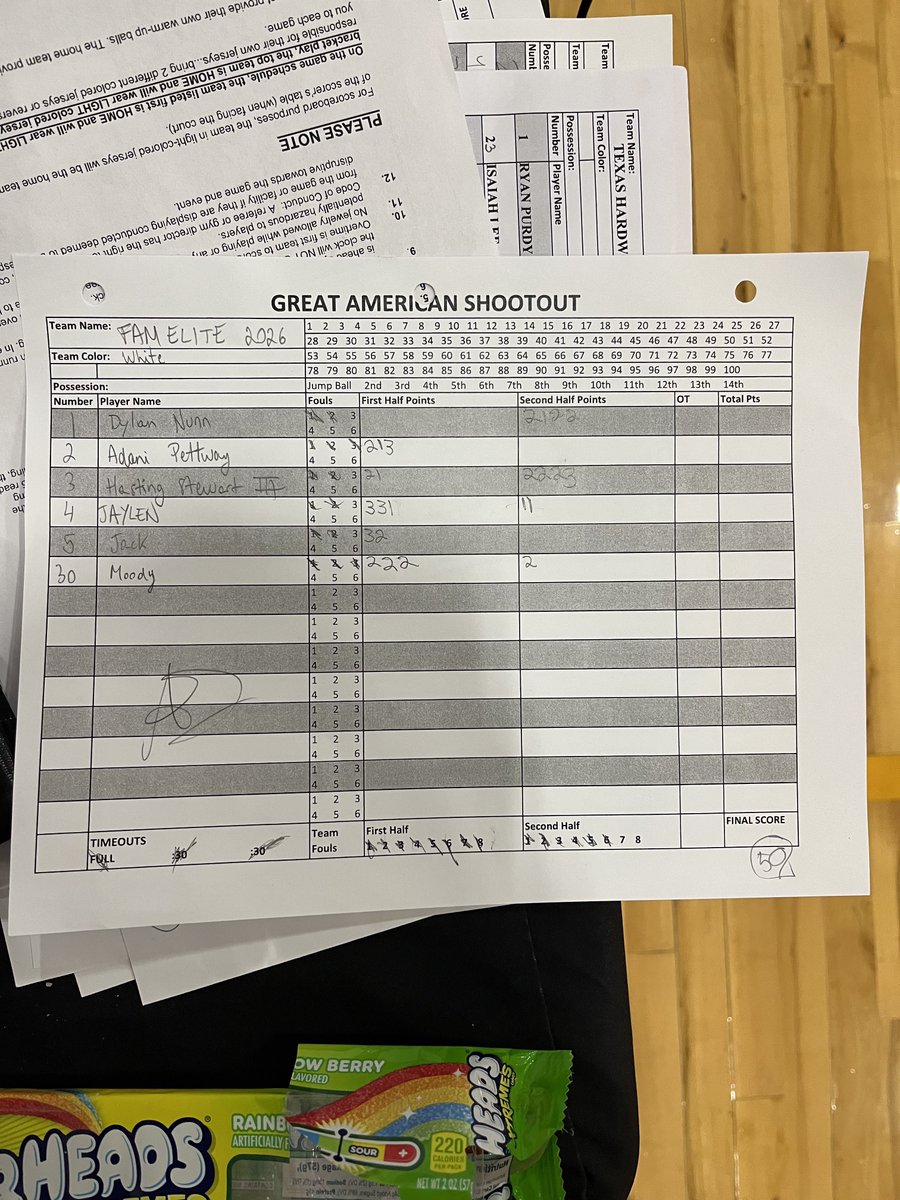 provide their own warm-up balls. The home team provi
you to each game.
responsible for their own jerseys...bring 2 different colored jerseys or revers
bracket play, the top team is HOME and will wear LIGHT
On the game schedule, the team listed first is HOME and will wear LIGHT colored jersey
of the scorer's table (when facing the court).
For scoreboard purposes, the team in light-colored jerseys will be the home team
PLEASE NOTE
disruptive towards the game and event.
12.
from the game or facility if they are displaying conducted deemed to
Code of Conduct: A referee or gym director has the right to
11.
potentially hazardous to players.
10.
No jewelry allowed while playing or any
Overtime is first team to score
9.
the clock will NOT
is ahead
Team Name: TEXAS HARDW
Team Color:
Possession:
Number Player Name
1 RYAN PURDY
23 ISAIAH LEE
GREAT AMERICAN SHOOTOUT
Team Name: FAM ELITE 2026
1 2 3 4 5 6 7 8 9 10 11 12 13 14 15 16 17 18 19 20 21 22 23 24 25 26 27
28 29 30 31 32 33 34 35 36 37 38 39 40 41 42 43 44 45 46 47 48 49 50 51 52
Team Color: White
53 54 55 56 57 58 59 60 61 62 63 64 65 66 67 68 69 70 71 72 73 74 75 76 77
78 79 80 81 82 83 84 85 86 87 88 89 90 91 92 93 94 95 96 97 98 99 100
Possession: Jump Ball 2nd 3rd 4th 5th 6th 7th 8th 9th 10th 11th 12th 13th 14th
Number Player Name Fouls First Half Points Second Half Points OT Total Pts
1 Dylan Nunn 1 2 3 2122
4 5 6
2 Adani Pettway 1 2 3 213
4 5 6
3 Hasting Stewart III 1 2 3 21 2223
4 5 6
4 JAYLEN 1 2 3 331 11
4 5 6
5 Jack 1 2 3 32
4 5 6
30 Moody 1 2 3 222 2
4 5 6
1 2 3
4 5 6
1 2 3
4 5 6
1 2 3
4 5 6
1 2 3
4 5 6
1 2 3
4 5 6
1 2 3
4 5 6
1 2 3
4 5 6
1 2 3
4 5 6
TIMEOUTS
FULL :30 :30
Team Fouls
First Half
1 2 3 4 5 6 7 8
Second Half
1 2 3 4 5 6 7 8
FINAL SCORE
50
OW BERRY
LAVORED
HEADS
XTREMES
SOUR
220
CALORIES
PER PACK
NET WT 2 OZ (57
RHEADS
RAINB
ARTIFICIALLY F